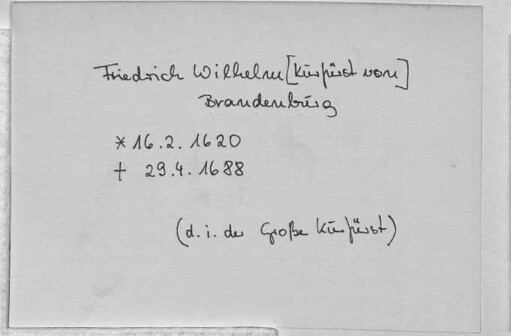 Friedrich Wilhelm [Kurfürst von]
Brandenburg
* 16.2.1620
† 29.4.1688
(d.i. der Große Kurfürst)